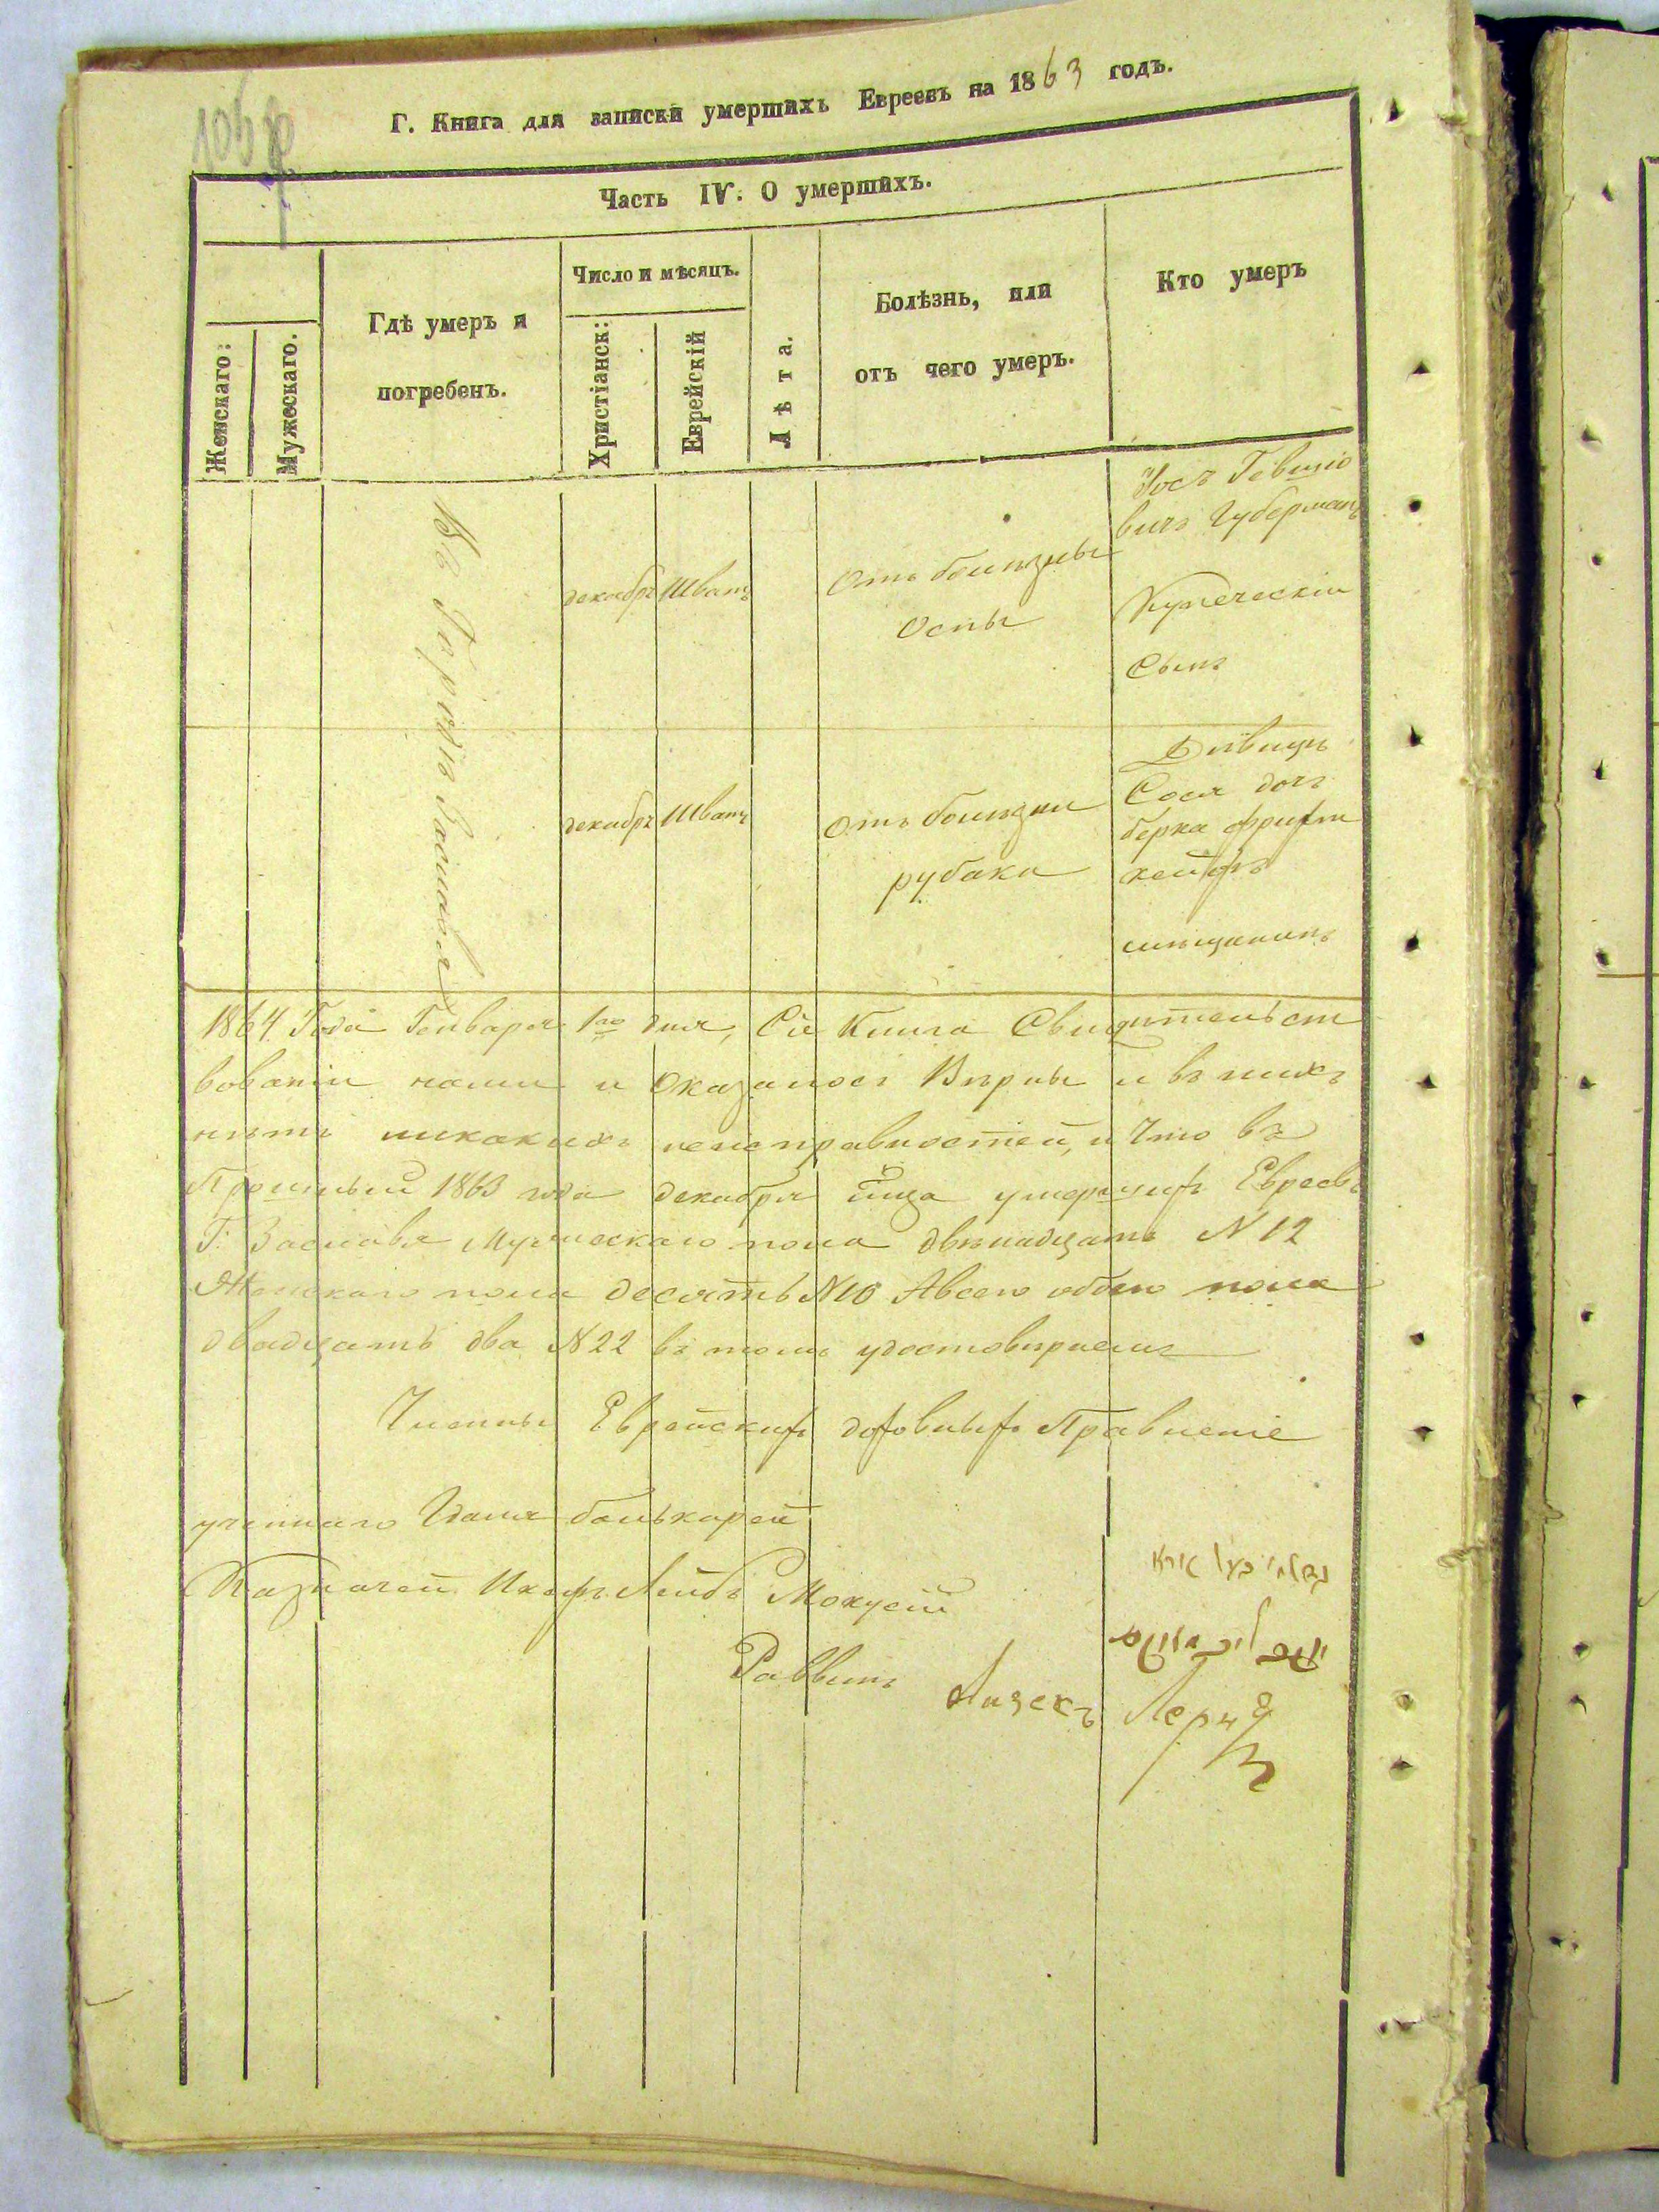 106
Г. Книга для записки умершихъ Евреевъ на 1863 годъ.
Часть IV. О умершихъ.
Женскаго:
Мужескаго.
Гдѣ умеръ и
погребенъ.
Число и мѣсяцъ.
Христіанск:
Еврейскій
Лѣта.
Болѣзнь, или
отъ чего умеръ.
Кто умеръ
Въ Городѣ Заславлѣ
декабръ
Шватъ
Отъ
Оспы
Іось
вичъ Губерманъ
Купеческій
Сынъ
декабръ
Шватъ
Отъ
рубака
Сося дочъ
берка
1864 Года Генваря 1го дня, Сіе Книга Свидѣтельст
вованіи нами и Оказалось Вѣрны и въ нихъ
нѣтъ никакихъ неисправностей, и Что въ
Прошлый 1863 года декабря м̃ца умерших Евреевъ
Г. Заславля Мужескаго пола двѣнадцать N 12
Женскаго пола десять N10 Авсего обоего пола
двадцать два N22 въ томъ удостовѣряемъ
Члены Еврейских доховных Правленіе
ученнаго
Казначей Лейбъ
Раввинъ Айзекъ